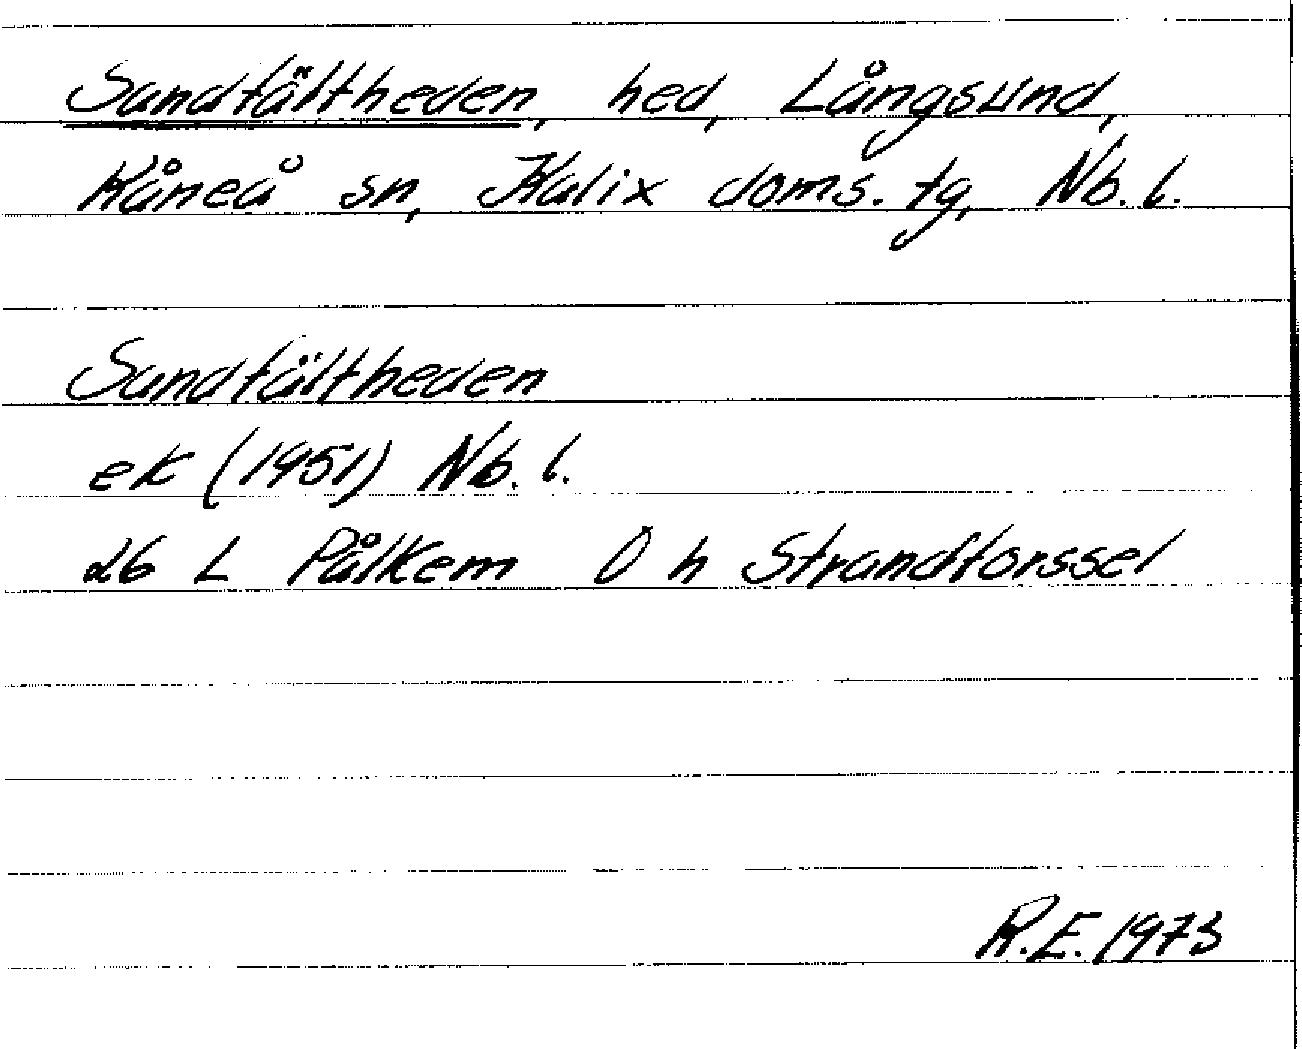 Sandtältheden, hed, Långsund,
Råneå sn, Kalix doms. tg, Nb. l.
Sandtältheden
ek (1951) Nb. l.
26 L Pålkem Ö h Strandforssel
R.E. 1973